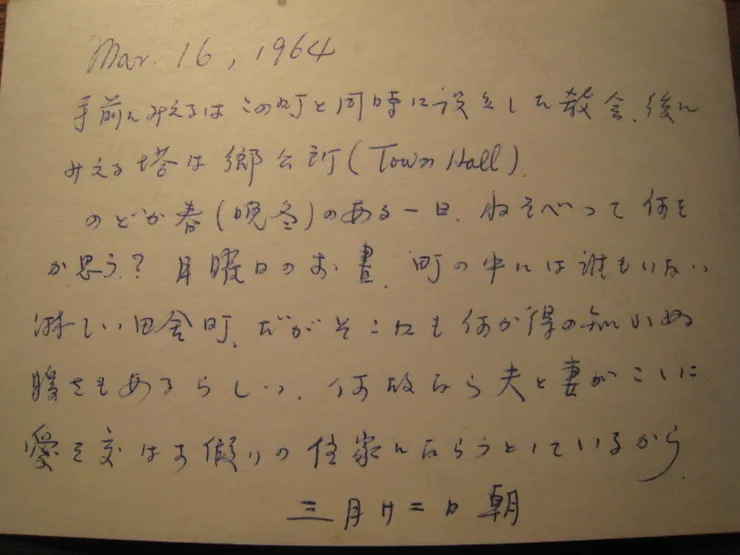 Mar. 16, 1964
手前にみえるはこの町と同時に設立した教会、後に
みえる塔は郷公所(Town Hall).
のどか春(晩冬)のある一日、ねそべって何を
か思う? 月曜日のお晝、町の中には誰もいない
淋しい田舎町、だがそこにも何か得の知れぬ
暖さもあるらしい、何故なら夫と妻がこゝに
愛を交はす假りの住家にならうとしているから
三月廿二日朝